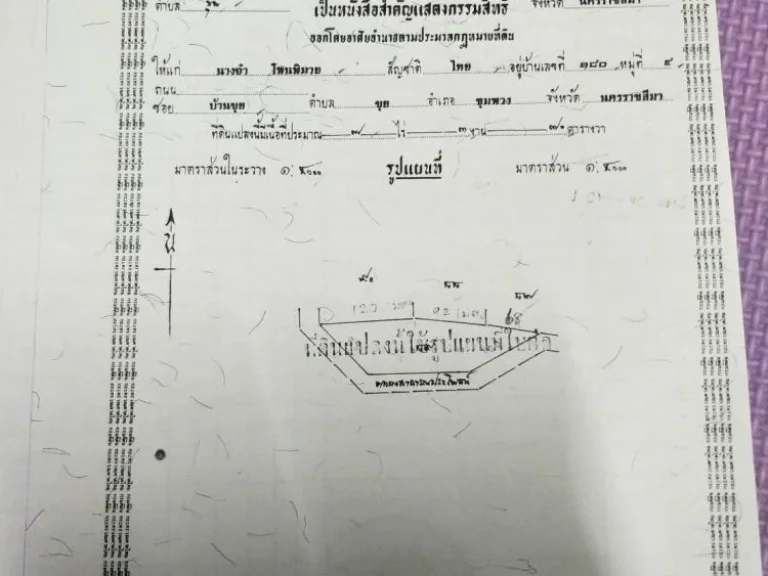 ตำบล จังหวัด นครราชสีมา
เป็นหนังสือสำคัญแสดงกรรมสิทธิ์
ออกโดยอาศัยอำนาจตามประมวลกฎหมายที่ดิน
ให้แก่ นางจำ โพนพิมาย สัญชาติ ไทย อยู่บ้านเลขที่ ๑๘๐ หมู่ที่ ๙
ถนน
ซอย บ้านขุย ตำบล ขุย อำเภอ ชุมพวง จังหวัด นครราชสีมา
ที่ดินแปลงนี้มีเนื้อที่ประมาณ ๗ ไร่ ๓ งาน ๗๐ ตารางวา
มาตราส่วนในระวาง ๑:๕๐๐๐ รูปแผนที่ มาตราส่วน ๑:๕๐๐๐
น
120 เมตร 92 เมตร 68
ที่ดินแปลงนี้ใช้รูปแผนที่ใบต่อ